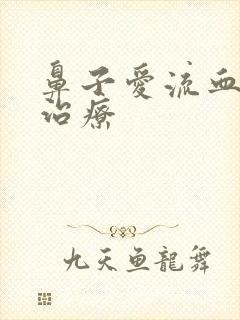 鼻子愛流血
治療
九天魚龍舞